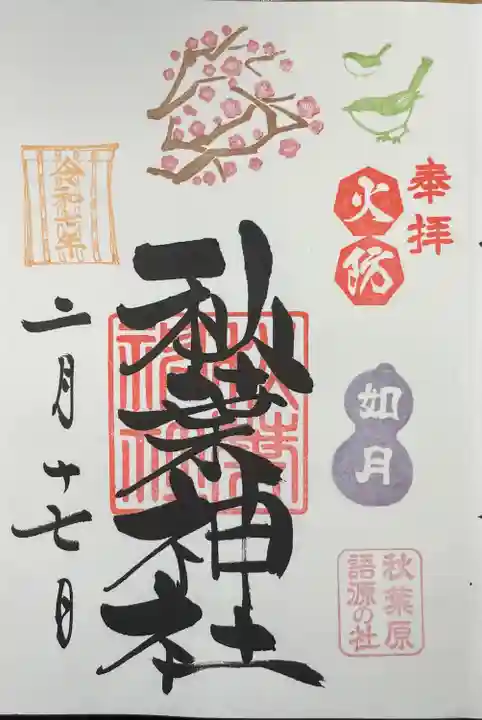 奉拝
火防
如月
秋葉原
語源の社
秋葉神社
秋葉
神社
令和六年
二月十七日